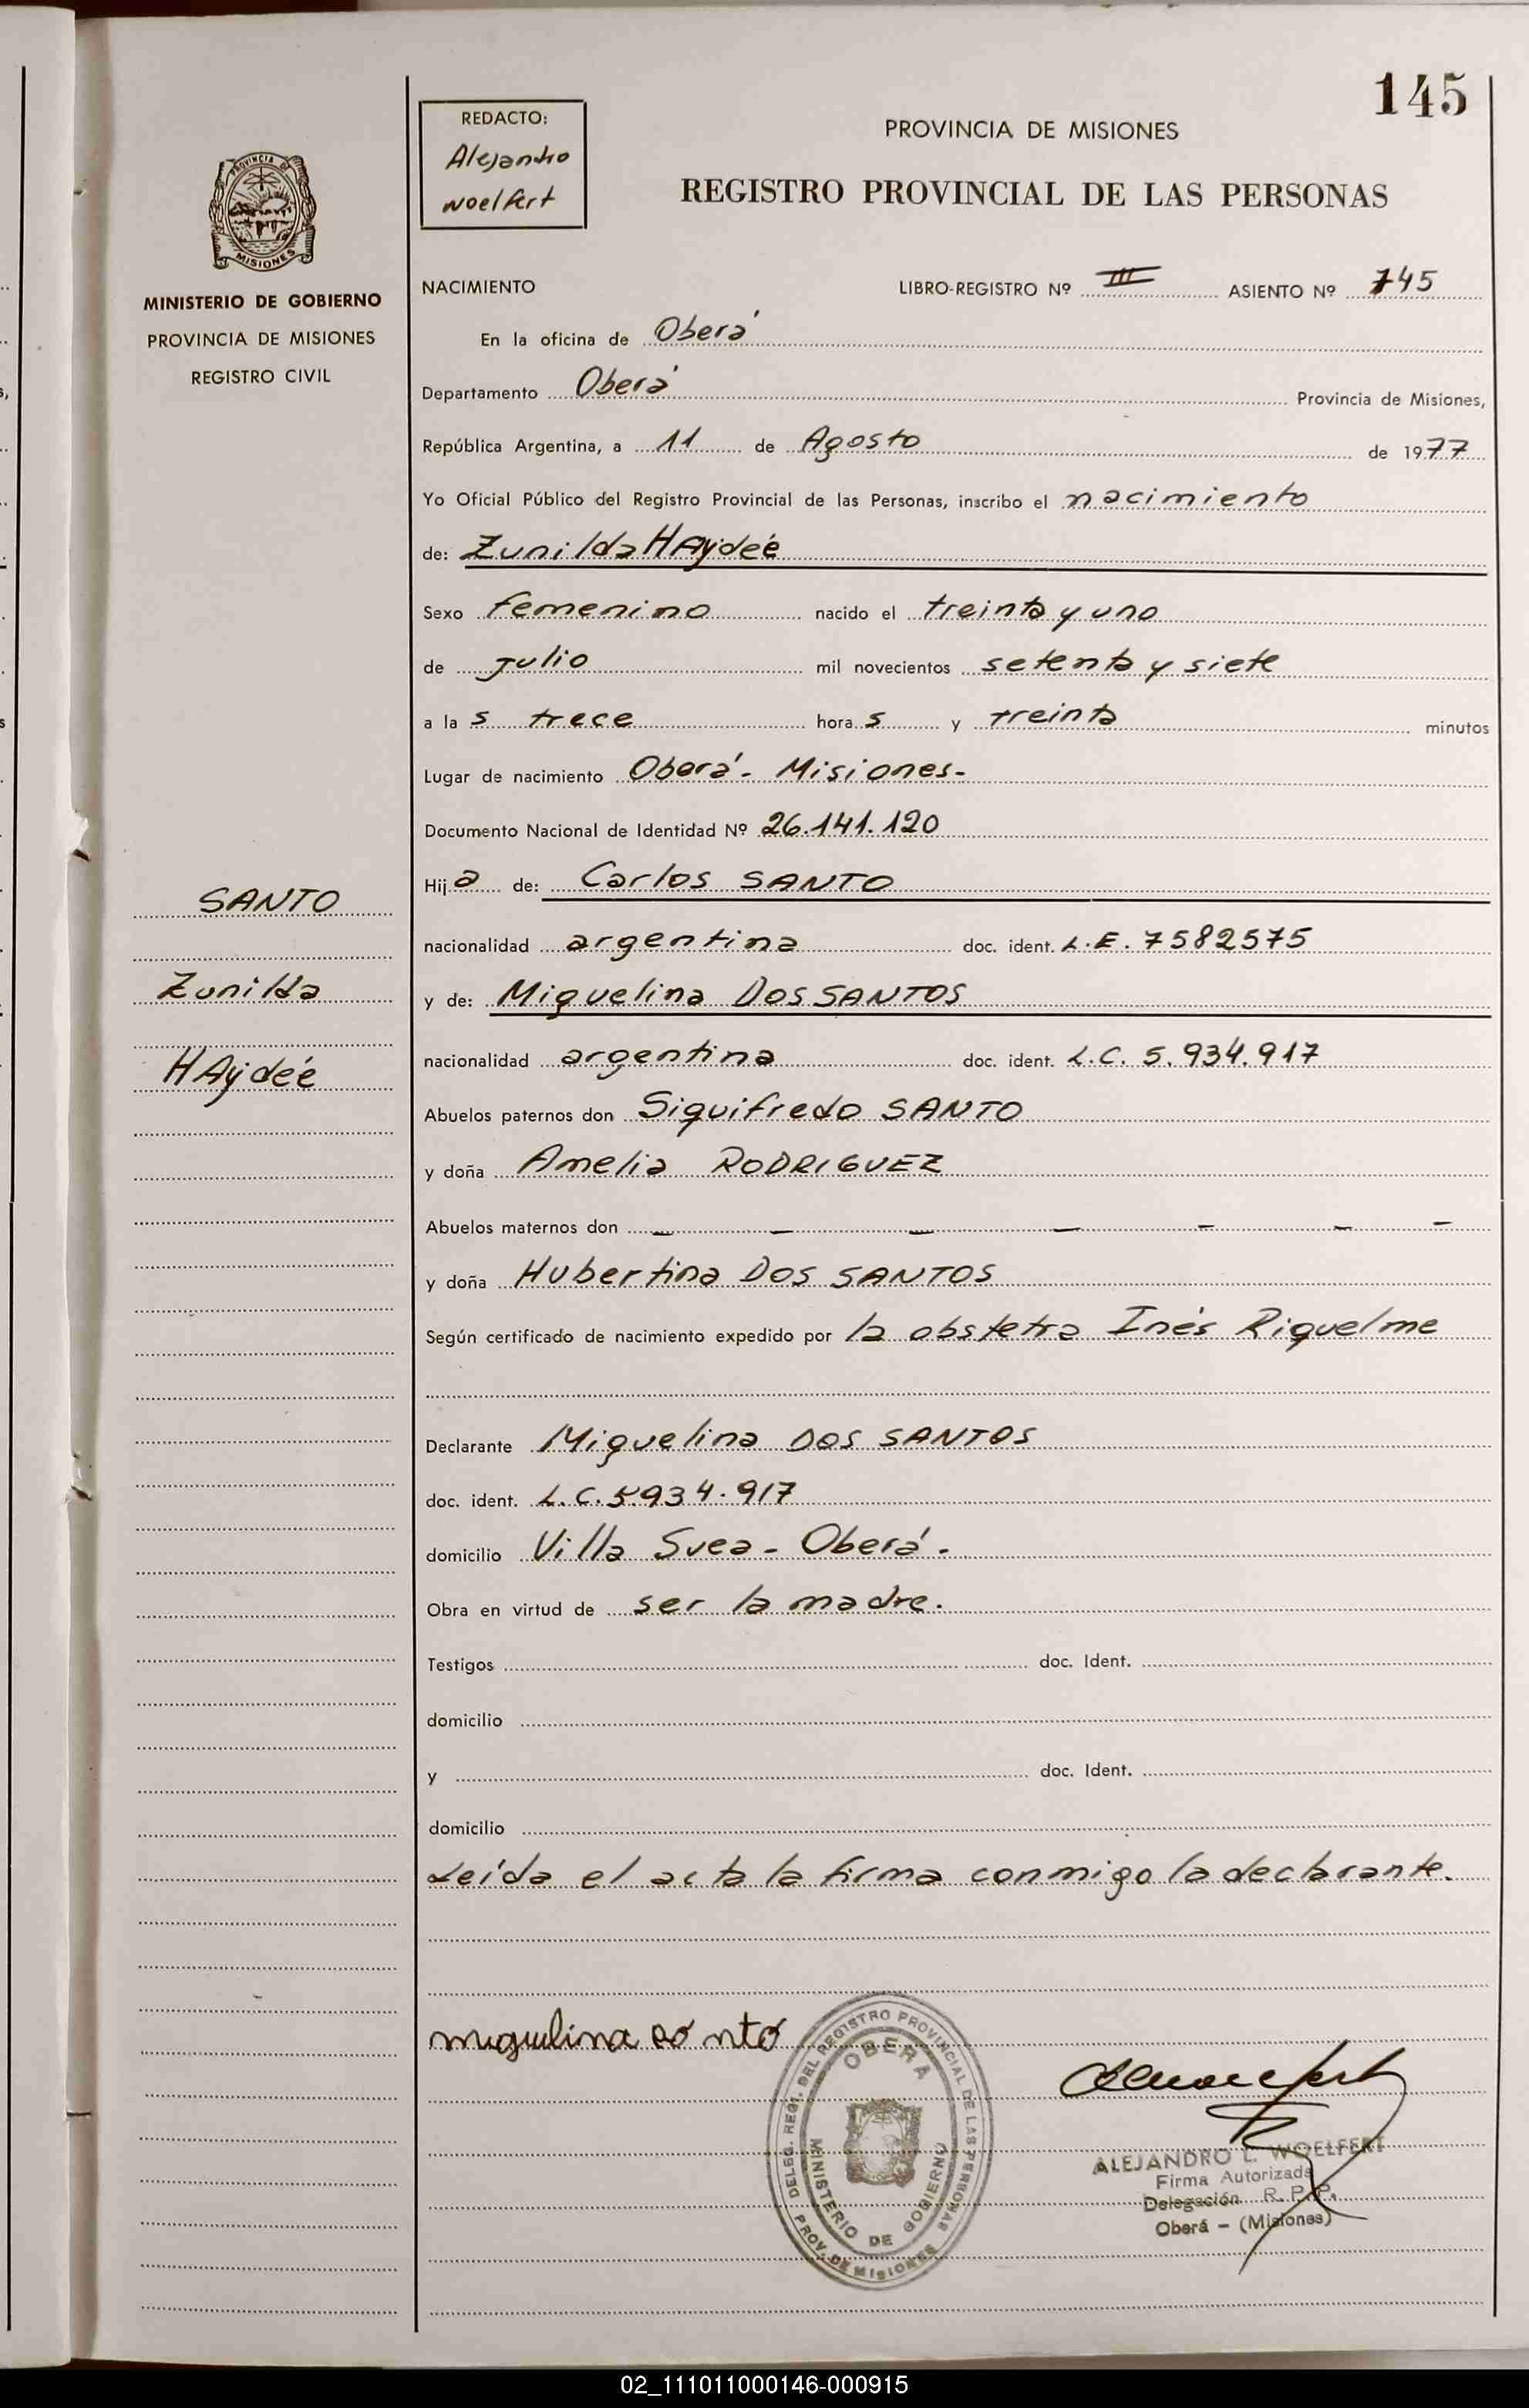 145
REDACTO:
Alejandro
woelfert
PROVINCIA DE MISIONES
REGISTRO PROVINCIAL DE LAS PERSONAS
PROVINCIA DE
MISIONES
MINISTERIO DE GOBIERNO
PROVINCIA DE MISIONES
REGISTRO CIVIL
NACIMIENTO LIBRO-REGISTRO Nº III ASIENTO Nº 745
En la oficina de Oberá
Departamento Oberá Provincia de Misiones,
República Argentina, a 11 de Agosto de 1977
Yo Oficial Público del Registro Provincial de las Personas, inscribo el nacimiento
de: Zunilda HAydeé
Sexo femenino nacido el treinta y uno
de julio mil novecientos setenta y siete
a la s trece hora s y treinta minutos
Lugar de nacimiento Oberá - Misiones-
Documento Nacional de Identidad Nº 26.141.120
Hij a de: Carlos SANTO
nacionalidad argentina doc. ident. L.E. 7582575
y de: Miguelina Dos SANTOS
nacionalidad argentina doc. ident. L.C. 5.934.917
Abuelos paternos don Siguifredo SANTO
y doña Amelia RODRIGUEZ
Abuelos maternos don - - - - - - -
y doña Hubertina Dos SANTOS
Según certificado de nacimiento expedido por la obstetra Inés Riquelme
Declarante Miguelina Dos SANTOS
doc. ident. L.C. 5.934.917
domicilio Villa Svea - Oberá.
Obra en virtud de ser la madre.
Testigos doc. Ident.
domicilio
y doc. Ident.
domicilio
Leída el acta la firma conmigo la declarante.
SANTO
Zunilda
HAydeé
miguelina sánto
DELEG. REGT. DEL REGISTRO PROVINCIAL DE LAS PERSONAS
OBERA
MINISTERIO DE GOBIERNO
PROV. DE MISIONES
ALEJANDRO L. WOELFERT
Firma Autorizada
Delegación R. P. P.
Oberá - (Misiones)
02_111011000146-000915